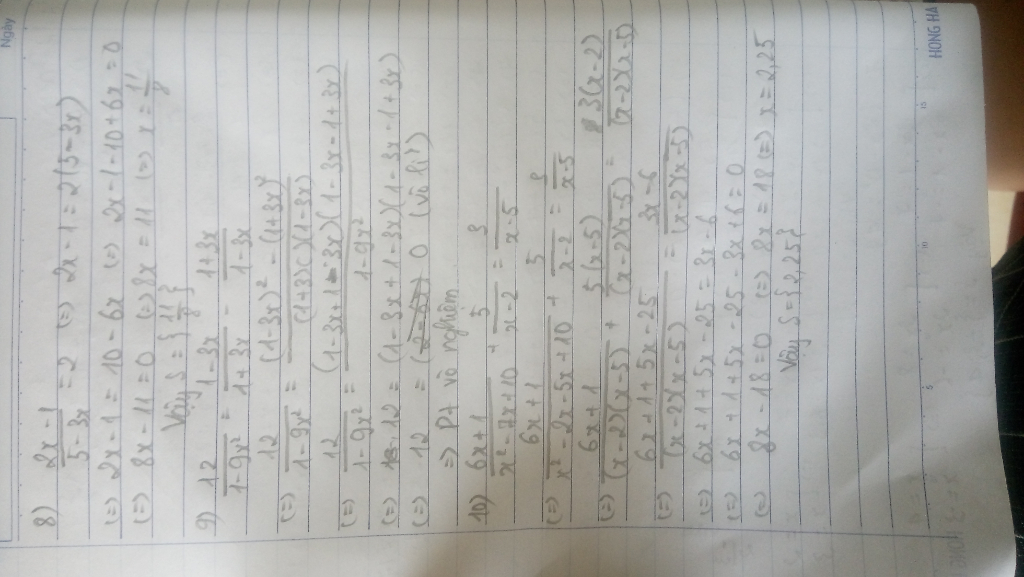 Ngày
8) (2x - 1)/(5 - 3x) = 2 (=) 2x - 1 = 2(5 - 3x)
(=) 2x - 1 = 10 - 6x (=) 2x - 1 - 10 + 6x = 0
(=) 8x - 11 = 0 (=) 8x = 11 (=) x = 11/8
Vậy S = {11/8}
9) 12/(1 - 9x²) = (1 - 3x)/(1 + 3x) - (1 + 3x)/(1 - 3x)
(=) 12/(1 - 9x²) = ((1 - 3x)² - (1 + 3x)²)/((1 + 3x)(1 - 3x))
(=) 12/(1 - 9x²) = (1 - 3x + 1 - 3x)(1 - 3x - 1 + 3x)/(1 - 9x²)
(=) 12 = (1 - 3x + 1 - 3x)(1 - 3x - 1 + 3x)
(=) 12 = 0 (vô lí)
=> pt vô nghiệm
10) (6x + 1)/(x² - 7x + 10) + 5/(x - 2) = 3/(x - 5)
(=) (6x + 1)/(x² - 2x - 5x + 10) + 5/(x - 2) = 3/(x - 5)
(=) (6x + 1)/((x - 2)(x - 5)) + 5(x - 5)/((x - 2)(x - 5)) = 3(x - 2)/((x - 2)(x - 5))
(=) (6x + 1 + 5x - 25)/((x - 2)(x - 5)) = (3x - 6)/((x - 2)(x - 5))
(=) 6x + 1 + 5x - 25 = 3x - 6
(=) 6x + 1 + 5x - 25 - 3x + 6 = 0
(=) 8x - 18 = 0 (=) 8x = 18 (=) x = 2,25
Vậy S = {2,25}
5 10 15
HONG HA